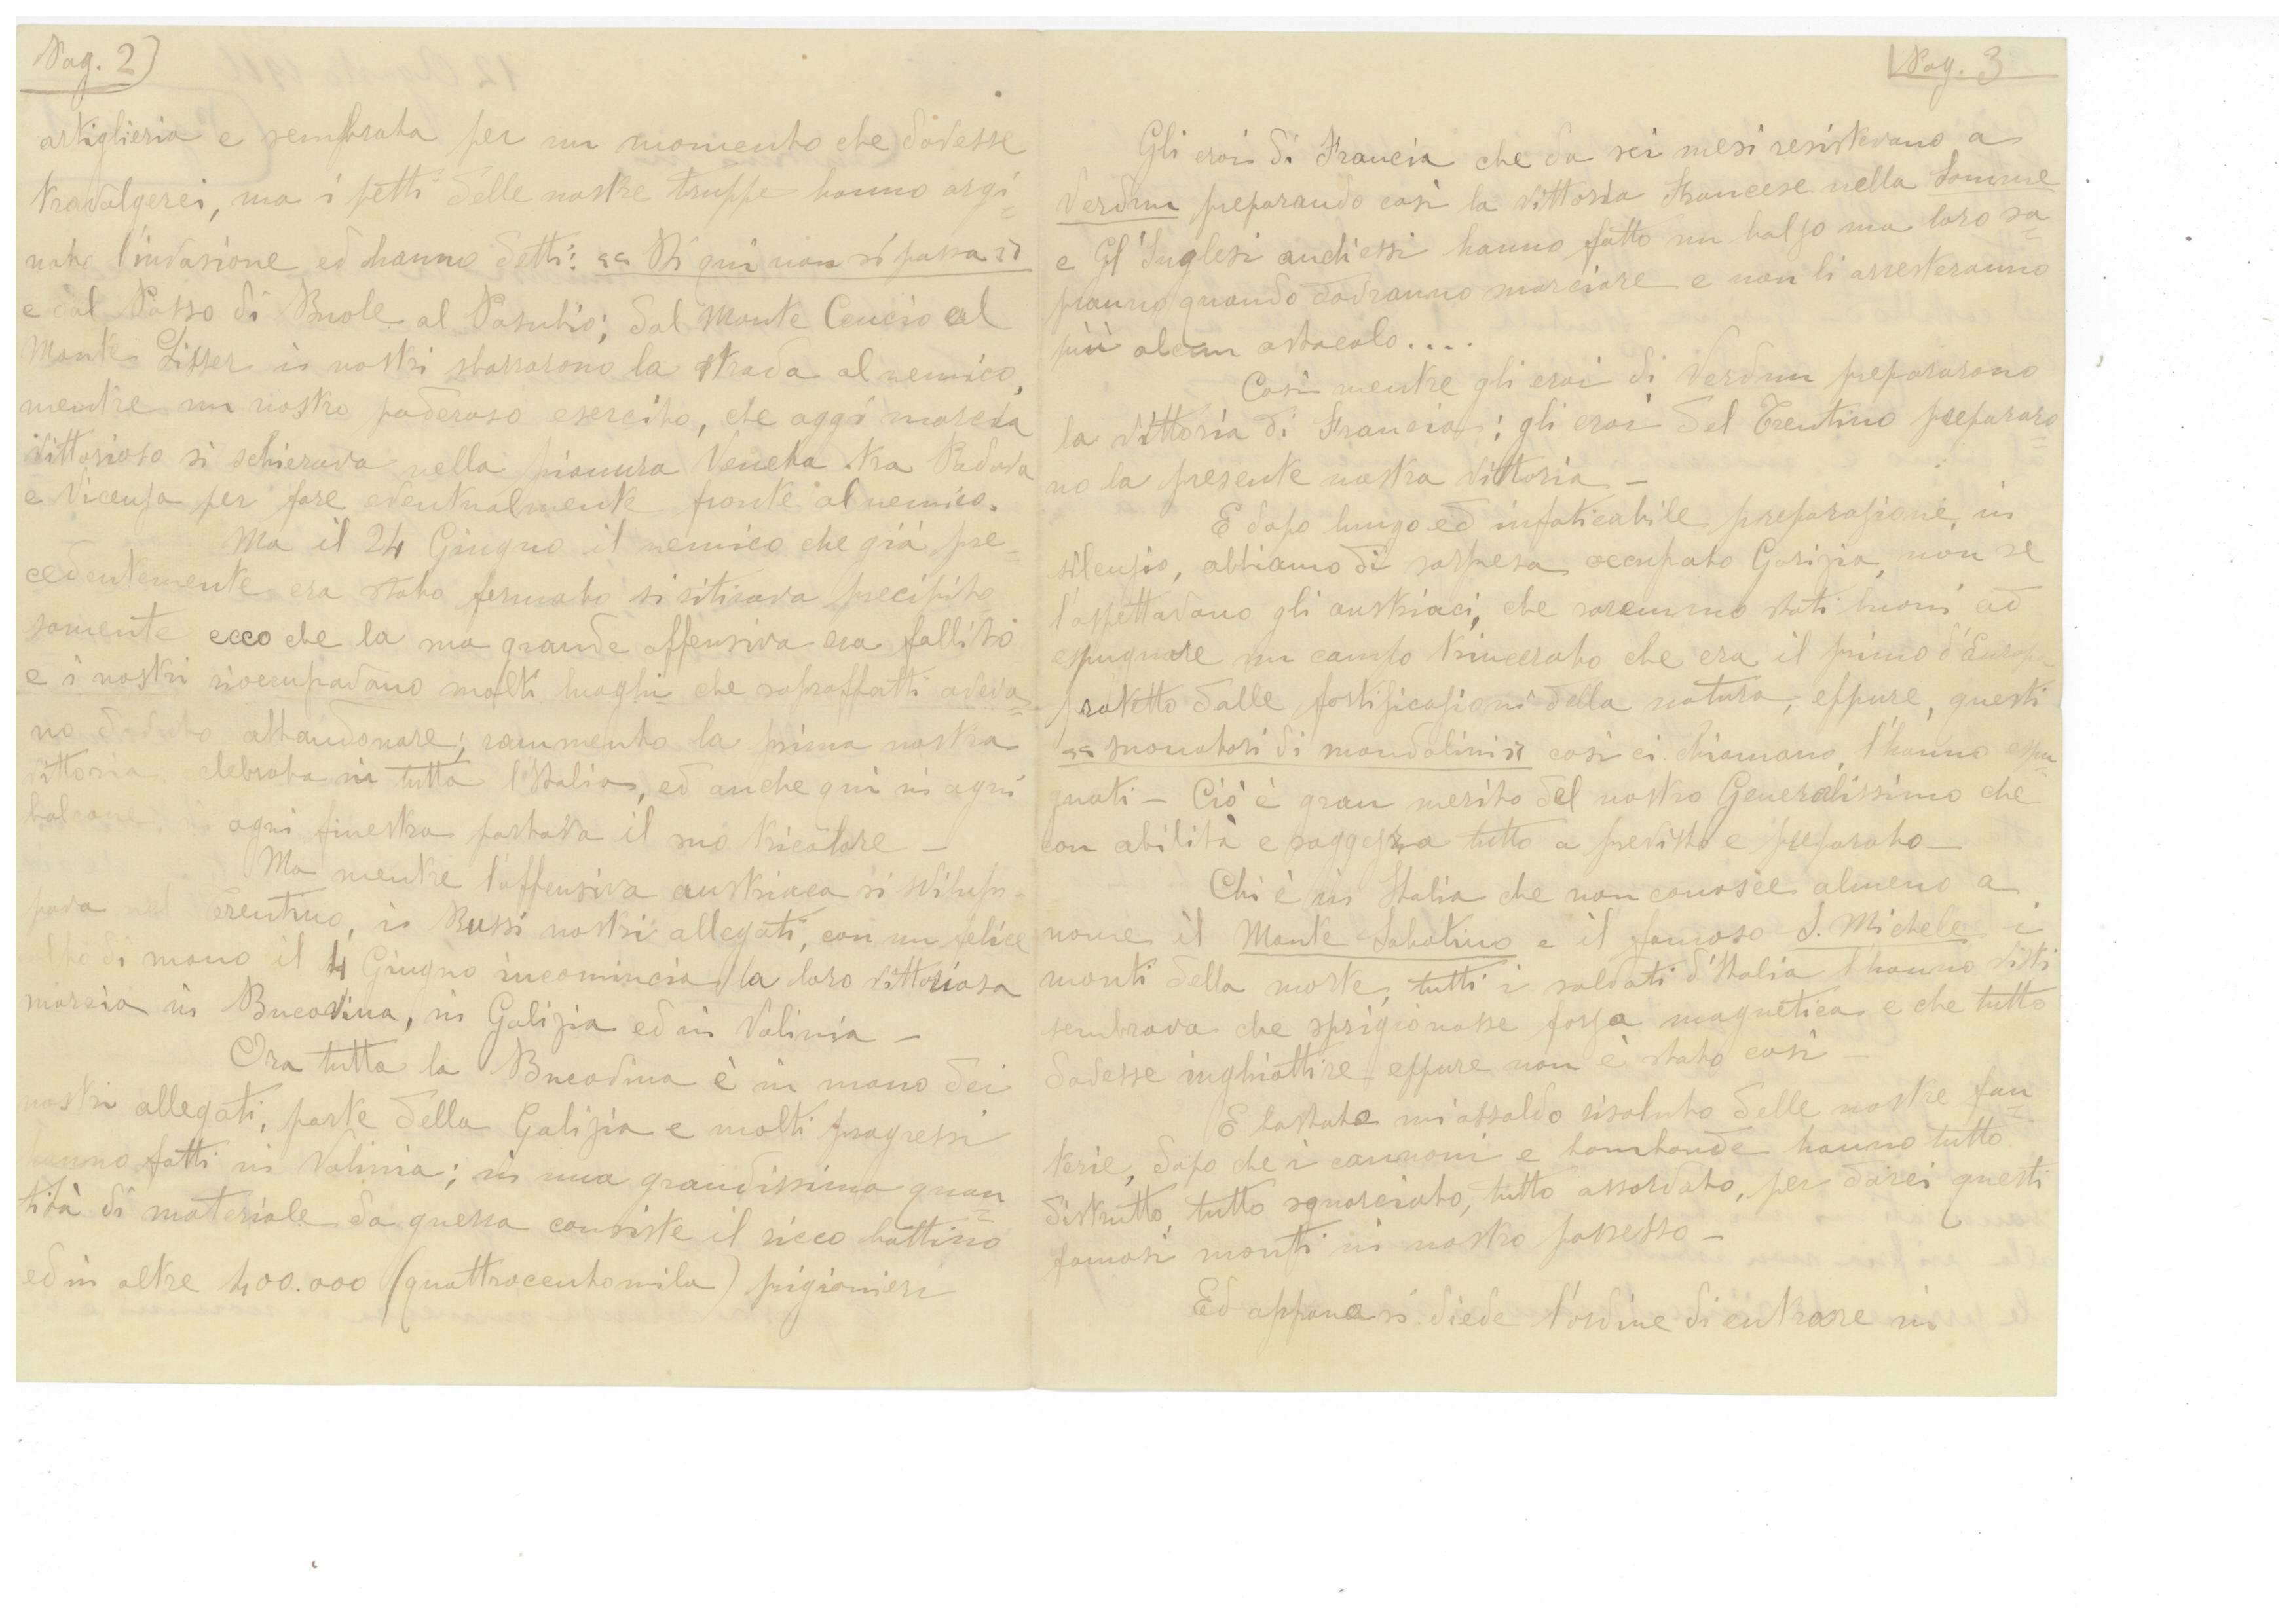 Pag. 2)
artiglieria e sembrata per un momento che dovesse
travolgerci, ma i petti delle nostre truppe hanno argi=
nato l'invasione ed hanno detti: "Di qui non si passa"
e dal Passo di Buole al Pasubio; dal Monte Cencio al
Monte Lisser i nostri sbarrarono la strada al nemico,
mentre un nostro poderoso esercito, che oggi marcia
vittorioso si schierava nella pianura Veneta tra Padova
e Vicenza per fare eventualmente fronte al nemico.
Ma il 24 Giugno il nemico che già pre=
cedentemente era stato fermato si ritirava precipito
samente ecco che la sua grande offensiva era fallita
e i nostri rioccupavano molti luoghi che sopraffatti aveva=
no dovuto abbandonare; rammento la prima nostra
vittoria, celebrata in tutta l'Italia, ed anche qui in ogni
balcone, in ogni finestra portava il suo tricolore –
Ma mentre l'offensiva austriaca si svilup-
pava nel Trentino, i Russi nostri allegati, con un felice
colpo di mano il 4 Giugno incomincia la loro vittoriosa
marcia in Bucovina, in Galizia ed in Volinia –
Ora tutta la Bucovina è in mano dei
nostri allegati, parte della Galizia e molti progressi
hanno fatti in Volinia; in una grandissima quan=
tità di materiale da guerra consiste il ricco bottino
ed in oltre 400.000 (quattrocentomila) prigionieri
Pag. 3
Gli eroi di Francia che da sei mesi resistevano a
Verdun preparando così la vittoria Francese nella Somme
e Gl'Inglesi anch'essi hanno fatto un balzo ma loro sa=
pranno quando dovranno marciare e non li arresteranno
più alcun ostacolo....
Così mentre gli eroi di Verdun prepararono
la vittoria di Francia; gli eroi del Trentino preparoro=
no la presente nostra vittoria –
E dopo lungo ed infaticabile preparazione, in
silenzio, abbiamo di sorpresa occupato Gorizia, non se
l'aspettavano gli austriaci, che saremmo stati buoni ad
espugnare un campo trincerato che era il primo d'Europa
protetto dalle fortificazioni della natura, eppure, questi
"suonatori di mandolini" così ci chiamano, l'hanno espu=
gnati – Ciò è gran merito del nostro Generalissimo che
con abilità e saggezza tutto a previsto e preparato –
Chi è in Italia che non conosce almeno a
nome il Monte Sabotino e il famoso S. Michele i
monti della morte, tutti i soldati d'Italia l'hanno visti
sembrava che sprigionasse forza magnetica e che tutto
dovesse inghiottire eppure non è stato così –
E bastato un'assaldo risoluto delle nostre fan=
terie, dopo che i cannoni e bombarde hanno tutto
distrutto, tutto squarciato, tutto assordato, per darci questi
famosi monti in nostro possesso –
Ed appena si diede l'ordine di entrare in